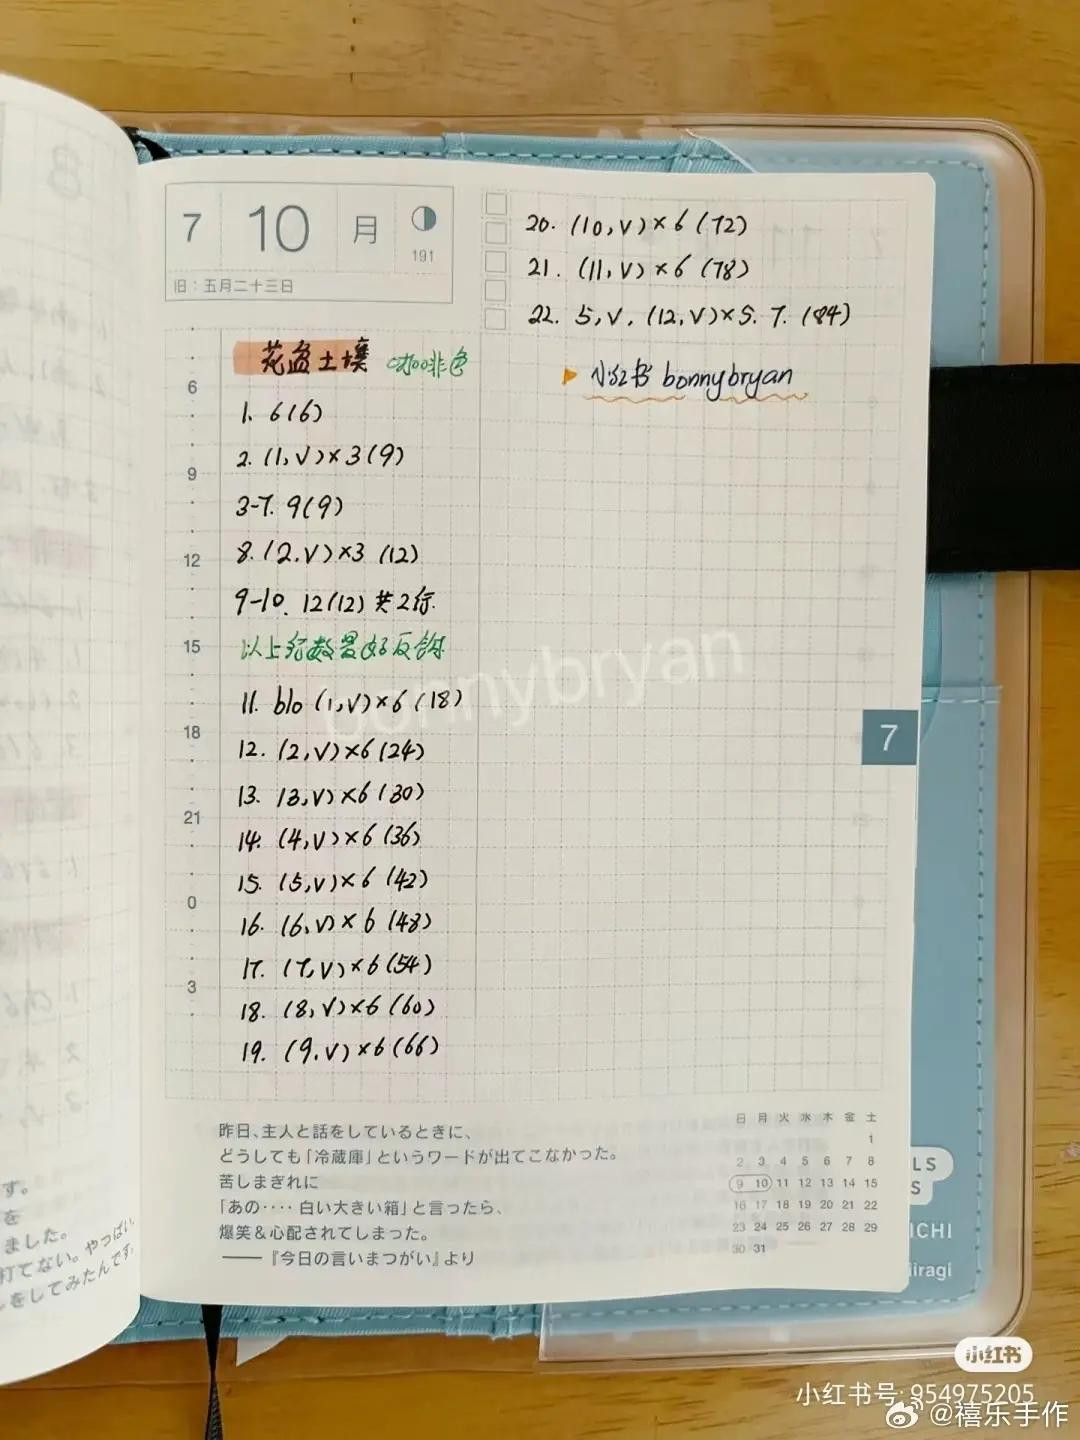 7 10 月
191
旧：五月二十三日
花盆土壤 咖啡色
1. 6(6)
2. (1,V)×3(9)
3-7. 9(9)
8. (2.V)×3 (12)
9-10. 12(12) 共2行.
11. blo (1,V)×6 (18)
12. (2,V)×6(24)
13. (3,V)×6(30)
14. (4,V)×6(36)
15. (5,V)×6(42)
16. (6,V)×6(48)
17. (7,V)×6(54)
18. (8,V)×6(60)
19. (9.V)×6(66)
6
9
12
15
18
21
0
3
20. (10,V)×6(72)
21. (11,V)×6(78)
22. 5,V,(12,V)×5.7.(84)
小红书 bonnybryan
bonnybryan
7
昨日、主人と話をしているときに、
どうしても「冷蔵庫」というワードが出てこなかった。
苦しまぎれに
「あの‥‥白い大きい箱」と言ったら、
爆笑＆心配されてしまった。
——『今日の言いまつがい』より
日 月 火 水 木 金 土
1
2 3 4 5 6 7 8
9 10 11 12 13 14 15
16 17 18 19 20 21 22
23 24 25 26 27 28 29
30 31
す。
を
ました。
打てない。やつばい、
をしてみたんです。
LS
S
ICHI
iiragi
小红书
小红书号: 954975205
@禧乐手作